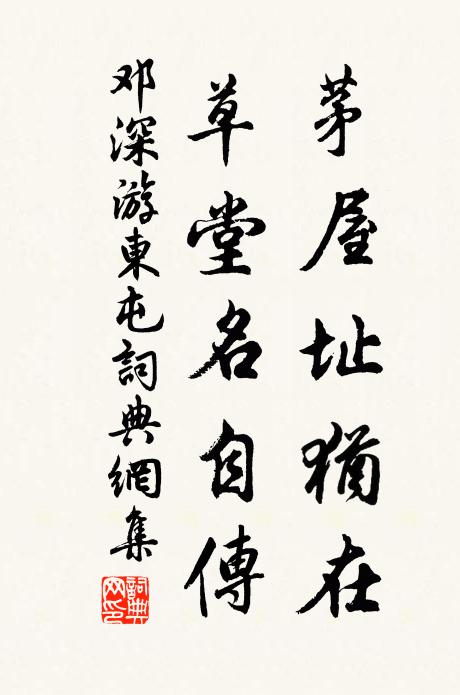 茅屋址猶在
草堂名自傳
邓深游東屯詞典網集
詞典网印